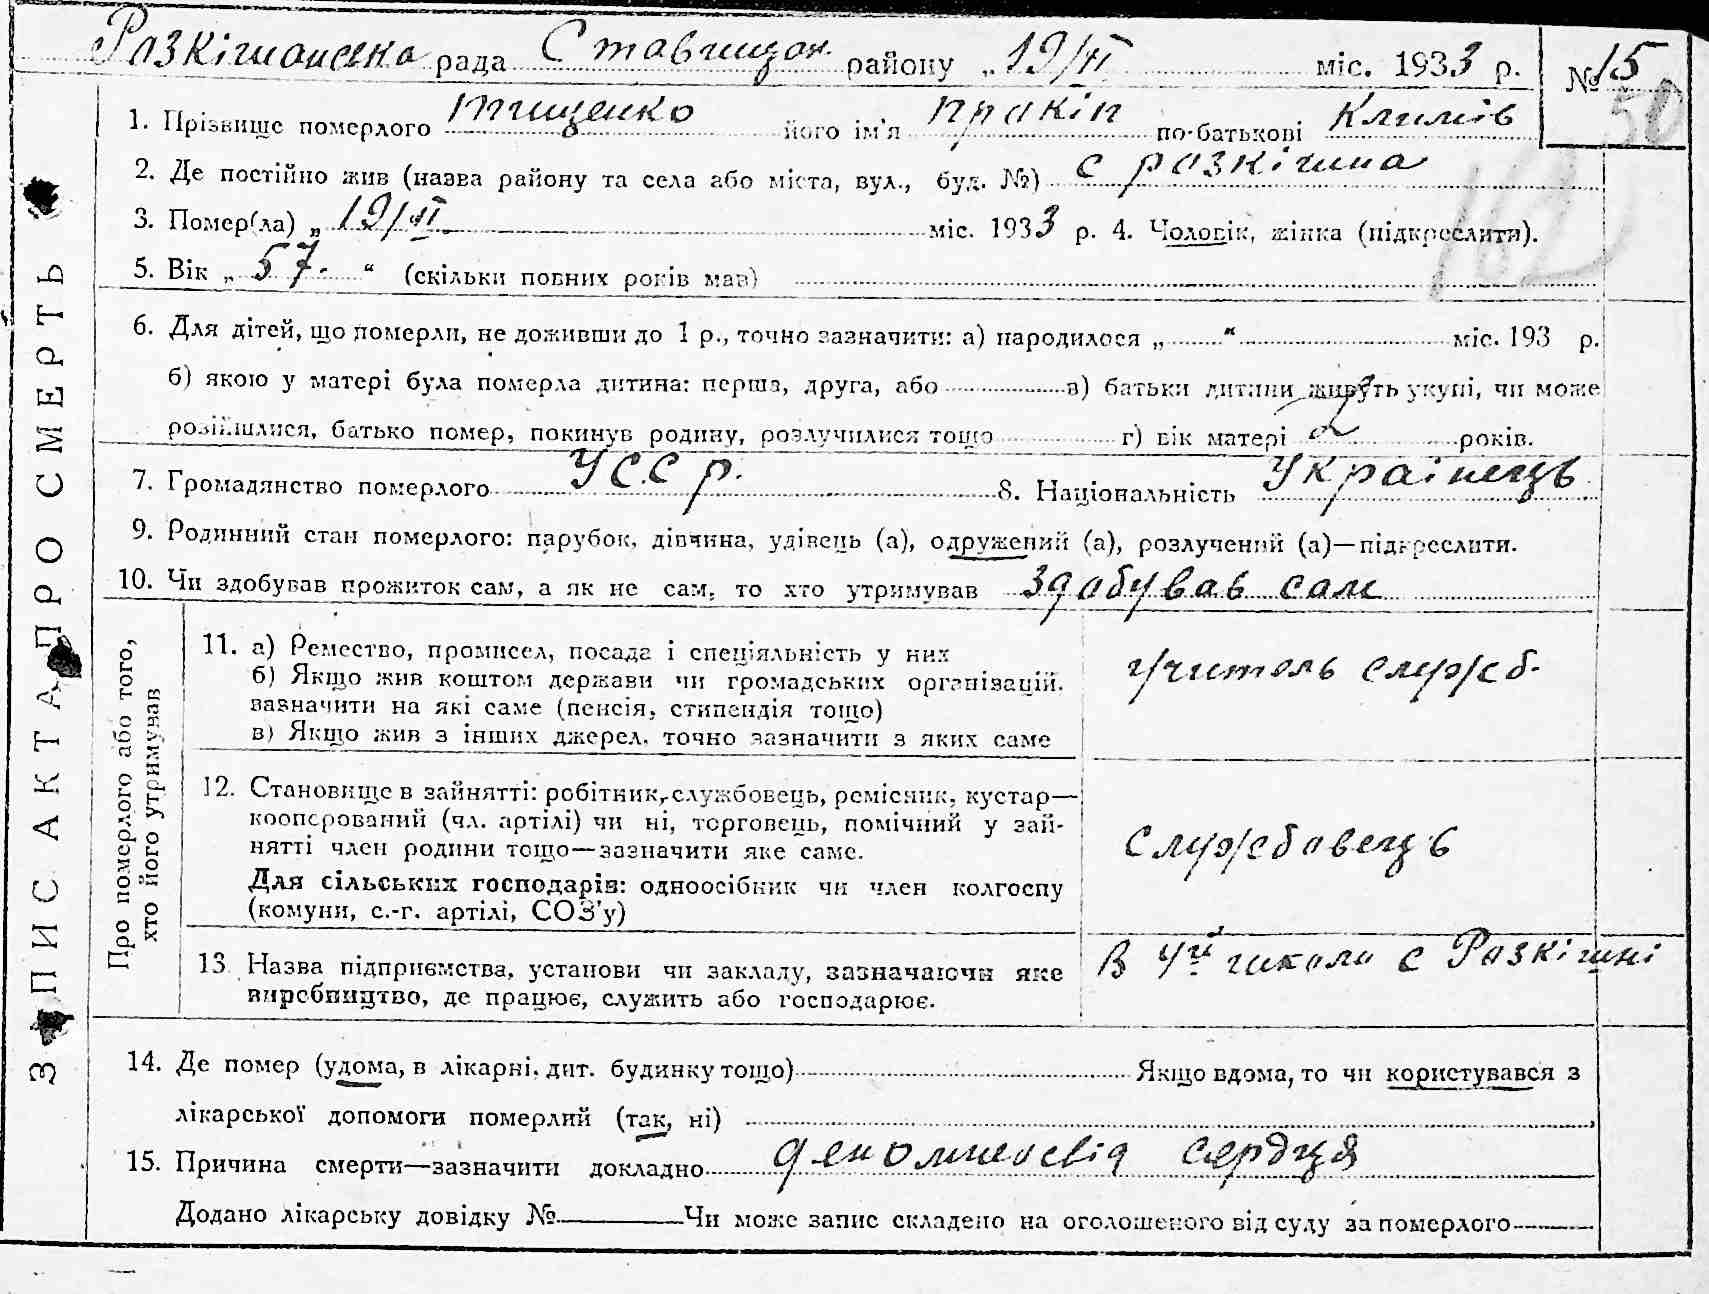 ЗАПИС АКТА ПРО СМЕРТЬ
Розкішанська рада Ставищан. району „ 19/VI міс. 1933 р. № 15
50
1. Прізвище померлого Тищенко його ім'я Пракіп по-батькові Климів
2. Де постійно жив (назва району та села або міста, вул., буд. №) с розкішна
162
3. Помер(ла) „ 19/VI міс. 1933 р. 4. Чоловік, жінка (підкреслити).
5. Вік „ 57. “ (скільки повних років мав)
6. Для дітей, що померли, не доживши до 1 р., точно зазначити: а) народилося „ “ міс. 193 р.
б) якою у матері була померла дитина: перша, друга, або в) батьки дитини живуть укупі, чи може
розійшлися, батько помер, покинув родину, розлучилися тощо г) вік матері років.
7. Громадянство померлого УССр. 8. Національність Українець
9. Родинний стан померлого: парубок, дівчина, удівець (а), одружений (а), розлучений (а)—підкреслити.
10. Чи здобував прожиток сам, а як не сам, то хто утримував здобував сам
Про померлого або того,
хто його утримував
11. а) Ремество, промисел, посада і спеціяльність у них
б) Якщо жив коштом держави чи громадських організацій,
зазначити на які саме (пенсія, стипендія тощо)
в) Якщо жив з інших джерел, точно зазначити з яких саме
учитель службб.
12. Становище в зайнятті: робітник, службовець, ремісник, кустар—
кооперований (чл. артілі) чи ні, торговець, помічний у зай-
нятті член родини тощо—зазначити яке саме.
Для сільських господарів: одноосібник чи член колгоспу
(комуни, с.-г. артілі, СОЗ'у)
службовець
13 Назва підприємства, установи чи закладу, зазначаючи яке
виробництво, де працює, служить або господарює.
В 4й школи с Розкішні
14. Де помер (удома, в лікарні, дит. будинку тощо) Якщо вдома, то чи користувався з
лікарської допомоги померлий (так, ні)
15. Причина смерти—зазначити докладно сердця
Додано лікарську довідку № Чи може запис складено на оголошеного від суду за померлого